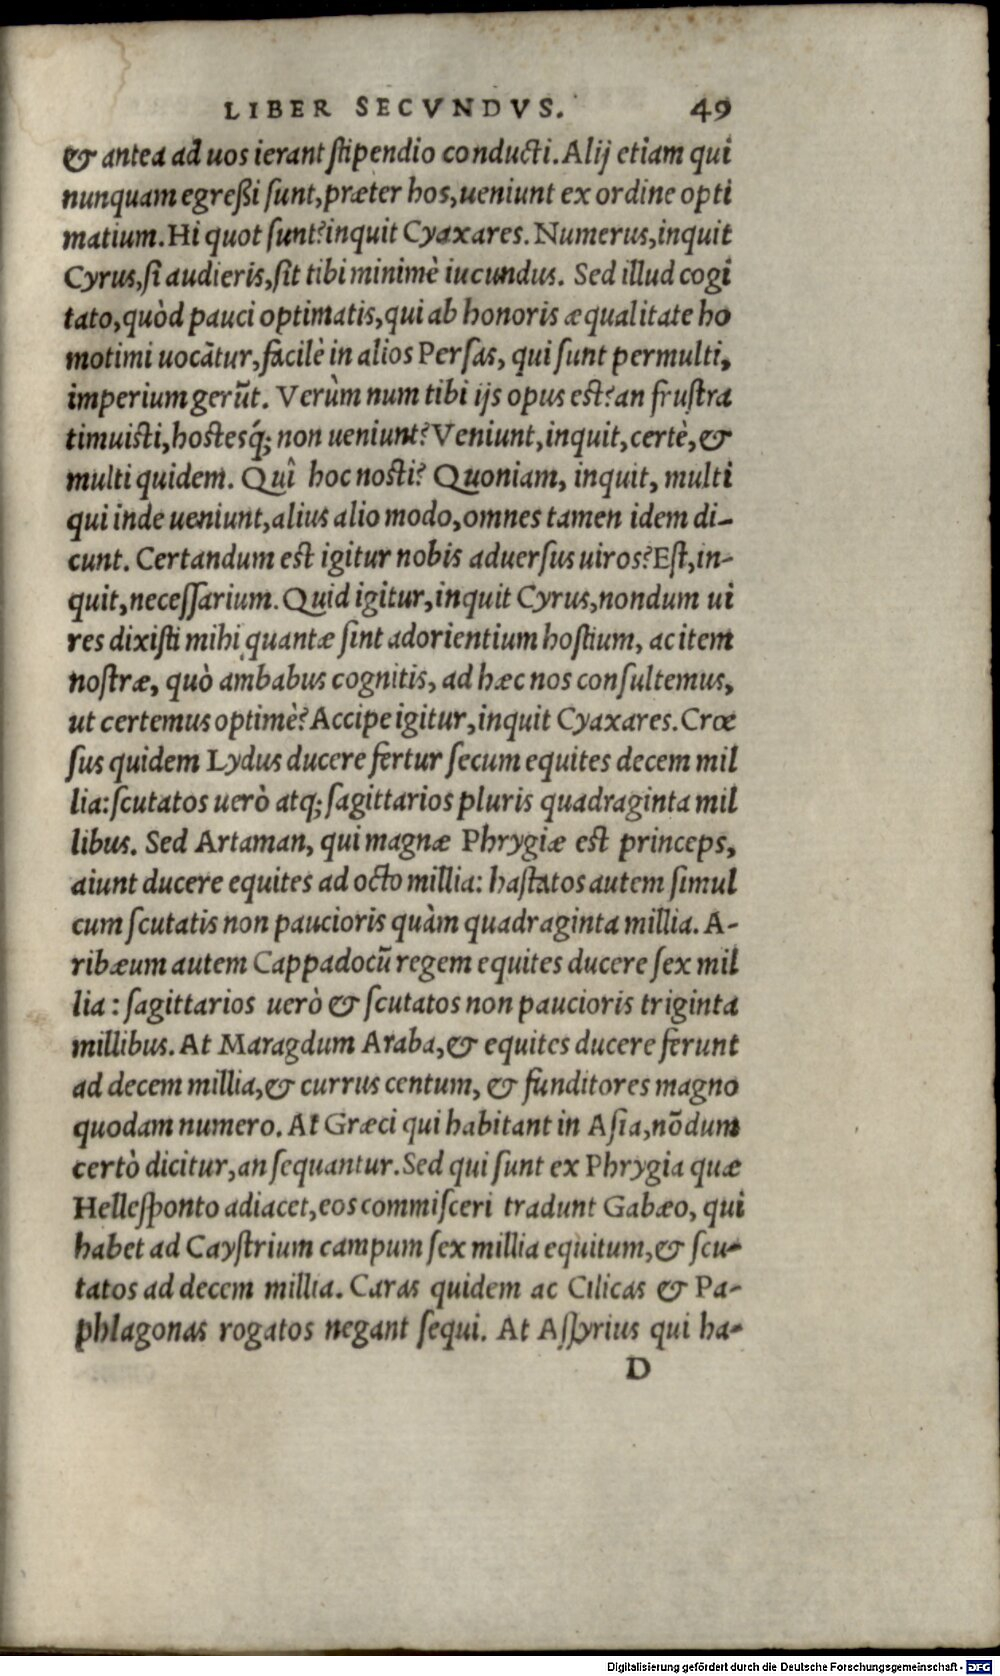 LIBER SECVNDVS. 49
& antea ad uos ierant stipendio conducti. Alij etiam qui
nunquam egreßi sunt, præter hos, ueniunt ex ordine opti
matium. Hi quot sunt? inquit Cyaxares. Numerus, inquit
Cyrus, si audieris, sit tibi minimè iucundus. Sed illud cogi
tato, quòd pauci optimatis, qui ab honoris æqualitate ho
motimi uocãtur, facilè in alios Persas, qui sunt permulti,
imperium gerũt. Verùm num tibi ijs opus est? an frustra
timuisti, hostesq́; non ueniunt? Veniunt, inquit, certè, &
multi quidem. Quî hoc nosti? Quoniam, inquit, multi
qui inde ueniunt, alius alio modo, omnes tamen idem di-
cunt. Certandum est igitur nobis aduersus uiros? Est, in-
quit, necessarium. Quid igitur, inquit Cyrus, nondum ui
res dixisti mihi quantæ sint adorientium hostium, ac item
nostræ, quò ambabus cognitis, ad hæc nos consultemus,
ut certemus optimè? Accipe igitur, inquit Cyaxares. Crœ
sus quidem Lydus ducere fertur secum equites decem mil
lia: scutatos uerò atq; sagittarios pluris quadraginta mil
libus. Sed Artaman, qui magnæ Phrygiæ est princeps,
aiunt ducere equites ad octo millia: hastatos autem simul
cum scutatis non paucioris quàm quadraginta millia. A-
ribæum autem Cappadocũ regem equites ducere sex mil
lia: sagittarios uerò & scutatos non paucioris triginta
millibus. At Maragdum Araba, & equites ducere ferunt
ad decem millia, & currus centum, & funditores magno
quodam numero. At Græci qui habitant in Asia, nõdum
certò dicitur, an sequantur. Sed qui sunt ex Phrygia quæ
Hellesponto adiacet, eos commisceri tradunt Gabæo, qui
habet ad Caystrium campum sex millia equitum, & scu-
tatos ad decem millia. Caras quidem ac Cilicas & Pa-
phlagonas rogatos negant sequi. At Assyrius qui ha-
D
Digitalisierung gefördert durch die Deutsche Forschungsgemeinschaft - DFG